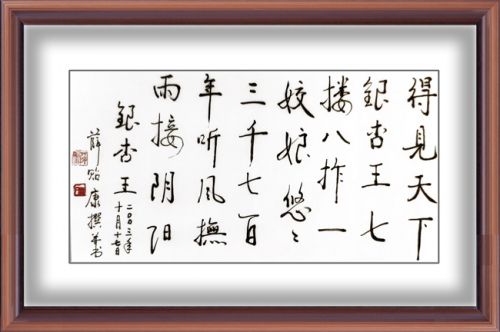 得見天下
银杏王七
搂八拃一
姣娘悠々
三千七百
年听风撫
雨接阴阳
银杏王
二〇〇三年
十月十七日
薛 康撰并书